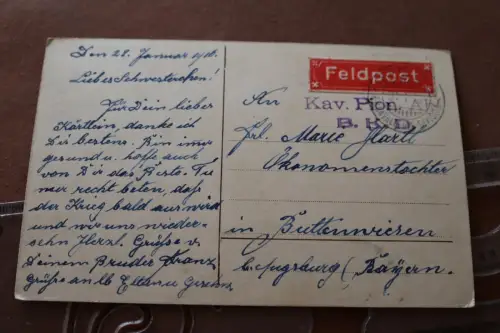 Den 28. Januar
Liebes Schwesterchen!
Für Dein lieber
Kärtlein, danke ich
Dir bestens. Bin imer
gesund u. hoffe auch
von Dir das Beste. Tu
nur recht beten, daß
der Krieg bald aus wird
und wir uns wieder-
sehn Herzl. Grüße v.
Deinem Bruder Franz
Grüße an lb Eltern u
Feldpost
Kav. Pion.
An
Frl. Marie Hartl
Ökonomenstochter
in Buttenwiesen
b. Augsburg (Bayern.